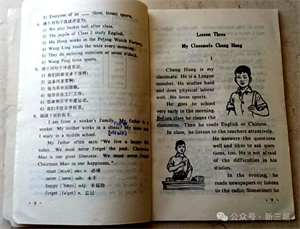 5) Everyone of us ___ (love, loves) sports.
1) We play basket ball after class.
2) The pupils of Class 1 study English.
3) Mu Hung works in the Peking Watch Factory.
4) Wang Ling reads the texts every morning.
5) They do morning exercises at seven o'clock.
6) Wang Ping loves sports.
I am from a worker's family. My father is a
worker. My mother works in a clinic. My sister and
I study in a middle school.
My father often says: "We live a happy life
today. We must never forget the past. Chairman
Mao is our great liberator. We must never forget
Chairman Mao in our happiness."
Lesson Three
My Classmate Chang Hung
I
Chang Hung is my
classmate. He is a League
member. He studies hard
and does physical labour
well. He loves sports.
He goes to school
very early in the morning.
Before class he cleans the
classroom. Then he reads English or Chinese.
In class, he listens to the teachers attentively.
He answers the questions
well and likes to ask ques-
tions, too. He is not afraid
of the difficulties in his
studies.
In the evening, he
reads newspapers or listens
to the radio. Sometimes he
公众号 · 新三届